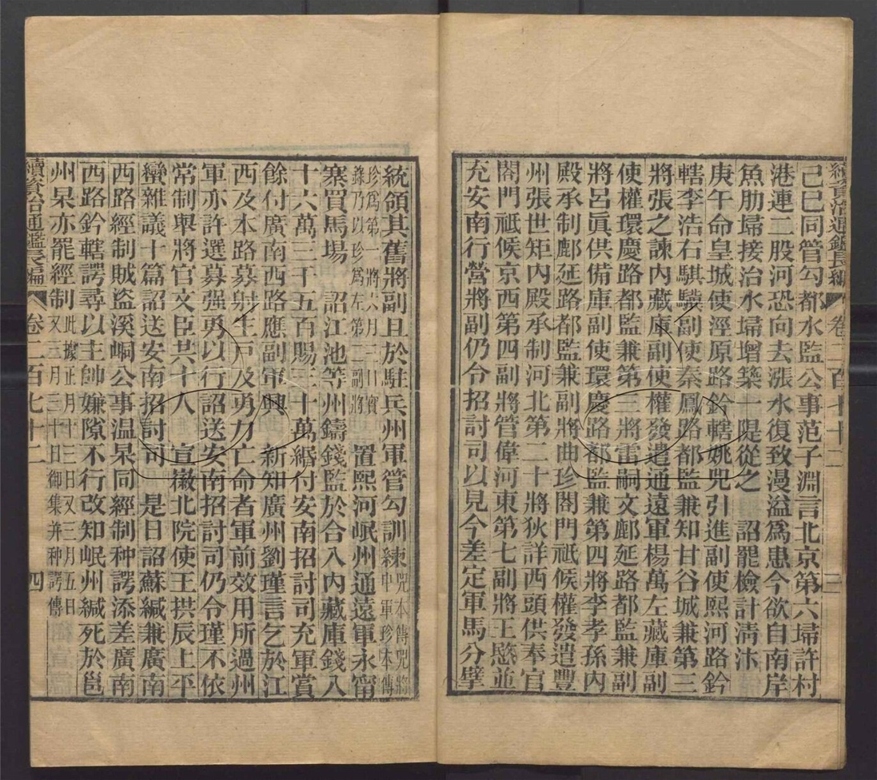 己巳同管勾都水監公事范子淵言北京第六埽許村
港連二股河恐向去漲水復致漫溢為患今欲自南岸
魚肋埽接治水埽增築一隄從之　詔罷檢計清汴
庚午命皇城使涇原路鈐轄姚兕引進副使熙河路鈐
轄李浩右騏驥副使秦鳳路都監兼知甘谷城兼第三
將張之諫內藏庫副使權發遣通遠軍楊萬左藏庫副
使權環慶路都監兼第三將雷嗣文鄜延路都監兼副
將呂真供備庫副使環慶路都監兼第四將李孝孫內
殿承制鄜延路都監兼副將曲珍閤門祗候權發遣豐
州張世矩內殿承制河北第二十將狄詳西頭供奉官
閤門祗候京西第四副將管偉河東第七副將王愍並
充安南行營將副仍令招討司以見今差定軍馬分擘
續資治通鑑長編　卷二百七十二　三
統領其舊將副且於駐兵州軍管勾訓練兕本傳兕將中軍珍本傳
珍為第一將六月三日實錄乃以珍為左第二副將　置熙河岷州通遠軍永甯
寨買馬場　詔江池等州鑄錢監於合入內藏庫錢八
十六萬三千五百賜三十萬緡付安南招討司充軍賞
餘付廣南西路應副軍興　新知廣州劉瑾言乞於江
西及本路募射生戶及勇力亡命者軍前效用所過州
軍亦許選募强勇以行詔送安南招討司仍令瑾不依
常制舉將官文臣共十人　宣徽北院使王拱辰上平
蠻雜議十篇詔送安南招討司　是日詔蘇緘兼廣南
西路經制賊盜溪峒公事温杲同經制种諤添差廣南
西路鈐轄諤尋以主帥嫌隙不行改知岷州緘死於邕
州杲亦罷經制此據正月十三日又三月五日又三月三十日御集并种諤傳
續資治通鑑長編　卷二百七十二　四